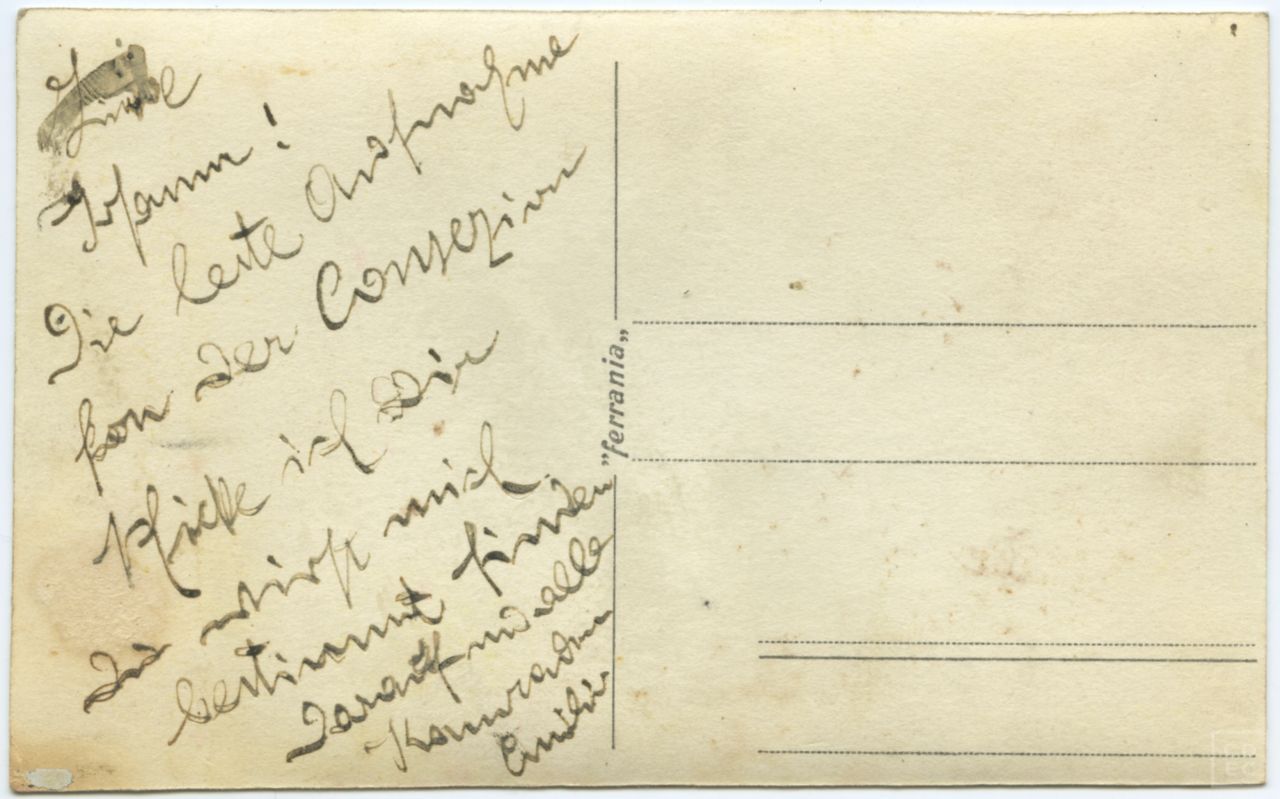 Liebe
Johann!
Die leste Aufnahme
fon der Conzezion
schicke ich Dir
Du wirst mich
bestimmt finden
darauf und alle
Kamraden
"ferrania"